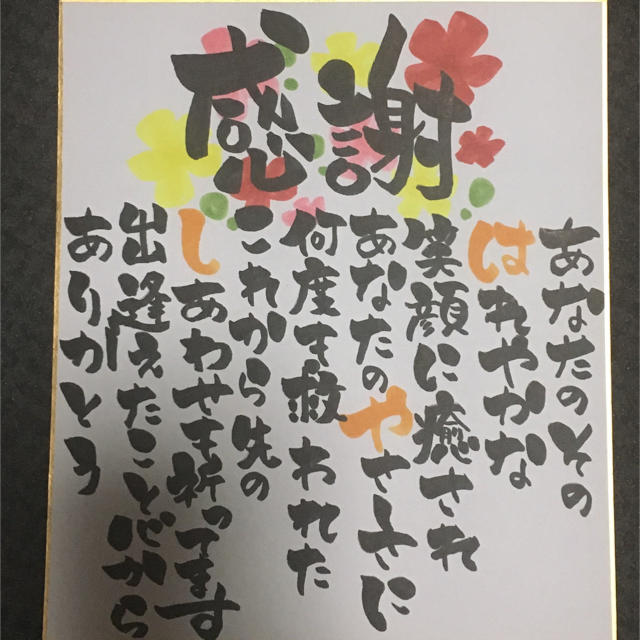 感謝
あなたのその
はれやかな
笑顔に癒され
あなたのやさしさに
何度も救われた
これから先の
しあわせを祈ってます
出逢えたこと心から
ありがとう